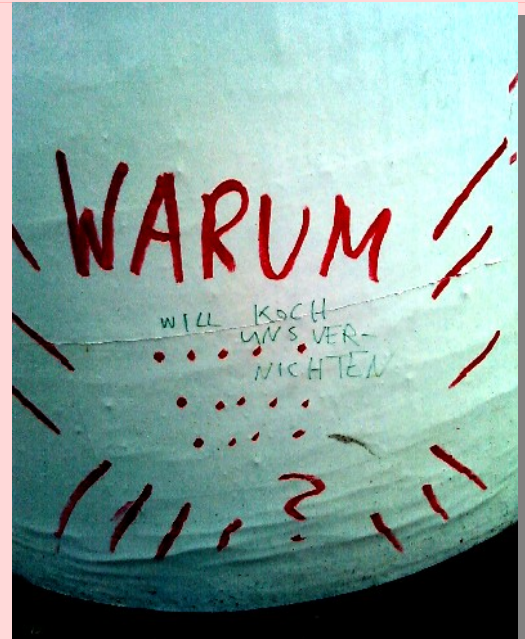 WARUM
WILL KOCH
UNS VER-
NICHTEN
?